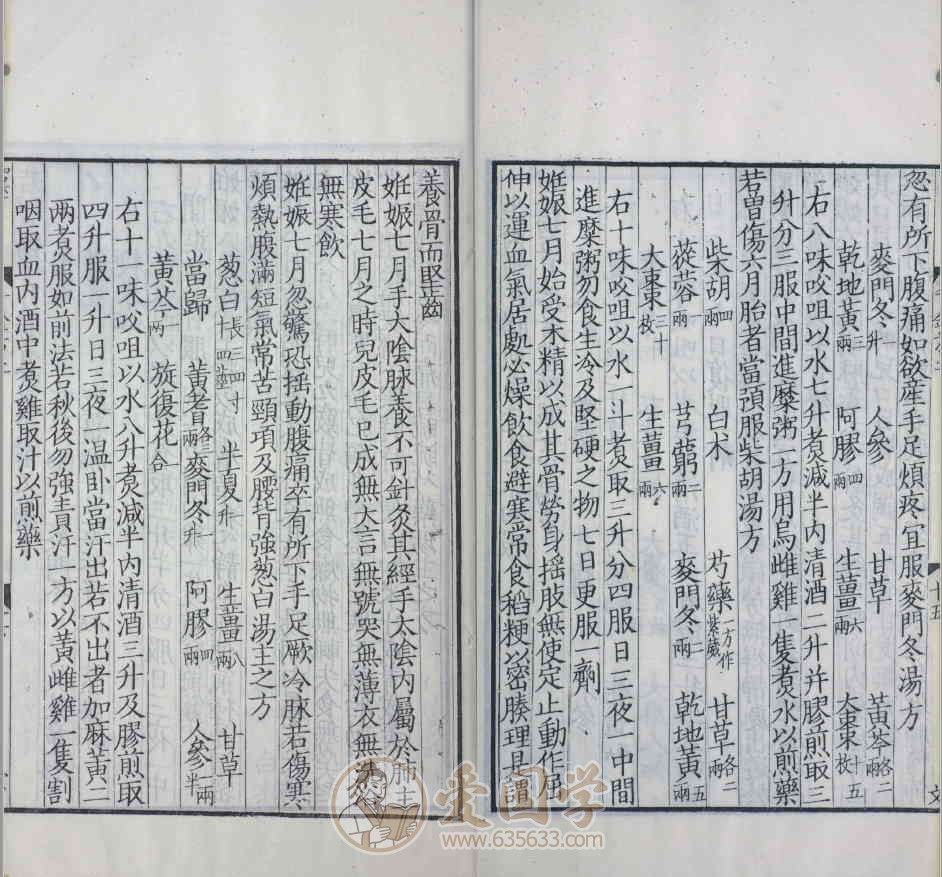 忽有所下腹痛如欲產手足煩疼宜服麥門冬湯方
麥門冬一升 人參 甘草 黃芩各二兩
乾地黃三兩 阿膠四兩 生薑六兩 大棗十五枚
右八味㕮咀以水七升煮減半內清酒二升并膠煎取三
升分三服中間進糜粥一方用烏雌雞一隻煮水以煎藥
若曾傷六月胎者當預服柴胡湯方
柴胡四兩 白朮 芍藥一方作紫葳 甘草各二兩
蓯蓉一兩 芎藭二兩 麥門冬二兩 乾地黃五兩
大棗三十枚 生薑六兩
右十味㕮咀以水一斗煮取三升分四服日三夜一中間
進糜粥勿食生冷及堅硬之物七日更服一劑
妊娠七月始受木精以成其骨勞身搖肢無使定止動作屈
伸以運血氣居處必燥飲食避寒常食稻粳以密腠理是謂
十五
養骨而堅齒
妊娠七月手太陰脉養不可針灸其經手太陰內屬於肺主
皮毛七月之時兒皮毛已成無大言無號哭無薄衣無洗浴
無寒飲
妊娠七月忽驚恐搖動腹痛卒有所下手足厥冷脉若傷寒
煩熱腹滿短氣常苦頸項及腰背強葱白湯主之方
葱白長三四寸十四莖 半夏一升 生薑八兩 甘草
當歸 黃耆各三兩 麥門冬一升 阿膠四兩 人參一兩半
黃芩一兩 旋復花一合
右十一味㕮咀以水八升煮減半內清酒三升及膠煎取
四升服一升日三夜一溫臥當汗出若不出者加麻黃二
兩煮服如前法若秋後勿強責汗一方以黃雌雞一隻割
咽取血內酒中煮雞取汁以煎藥
愛国学
www.635633.com